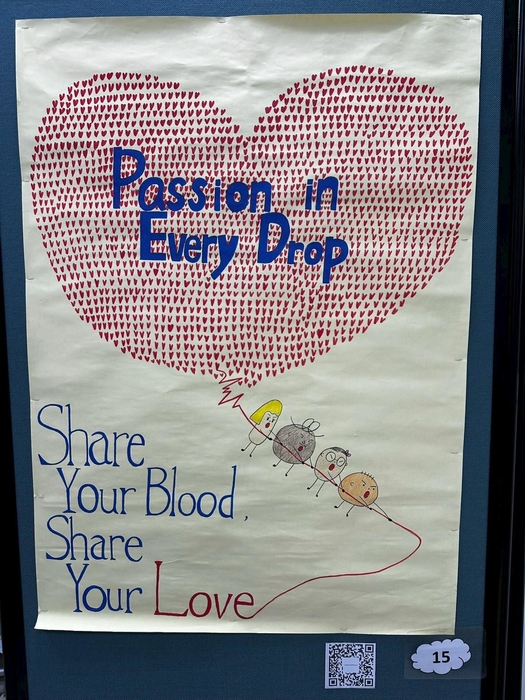 Passion in
Every Drop
Share
Your Blood,
Share
Your Love
15